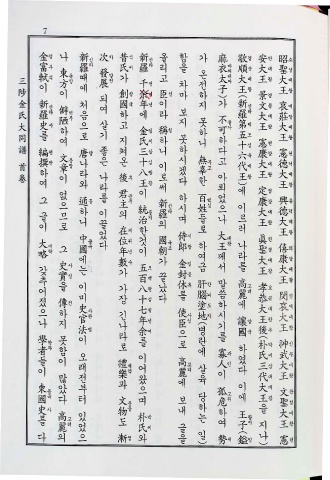 昭聖大王 哀莊大王 憲德大王 興德大王 僖康大王 閔哀大王 神武大王 文聖大王 憲
安大王 景文大王 憲康大王 定康大王 眞聖大王 孝恭大王後朴氏三代大王을 지나
敬順大王(新羅第五十六代王)에 이르러 나라를 高麗에 讓國하였다 이에 王子(鎰
麻衣太子)가 不可하다고 아뢰었으나 大王께서 말씀하시기를 寡人이 孤危하여 勢
가 온전하지 못하니 無辜한 百姓들로 하여금 肝腦塗地(병란에 살육 당하는 일)
함을 차마 보지 못하시겠다 하시며 侍郎 金封休를 使臣으로 高麗에 보내 글을
올리고 臣이라 稱하니 이로써 新羅의 國朝가 끝났다
新羅 千餘年에 金氏三十八王이 統治한것이 五百八十七年여를 이어왔으며 朴氏와
昔氏가 創國하고 지켜온 後 君主의 在位年數가 가장 긴나라로 禮樂과 文物도 漸
次 發展되여 살기 좋은 나라를 이끌었다
新羅때에 처음으로 唐나라와 通하나 中國에는 이미史官法이 오래전부터 있었으
나 東方이 僻陋하여 文章이 없으므로 그 史實을 傳하지 못함이 많았다 高麗의
金富軾이 新羅史를 編撰하여 그 글이 大略 갖추어졌으나 學者들이 東國史를 다
三陟金氏大同譜 首卷
7